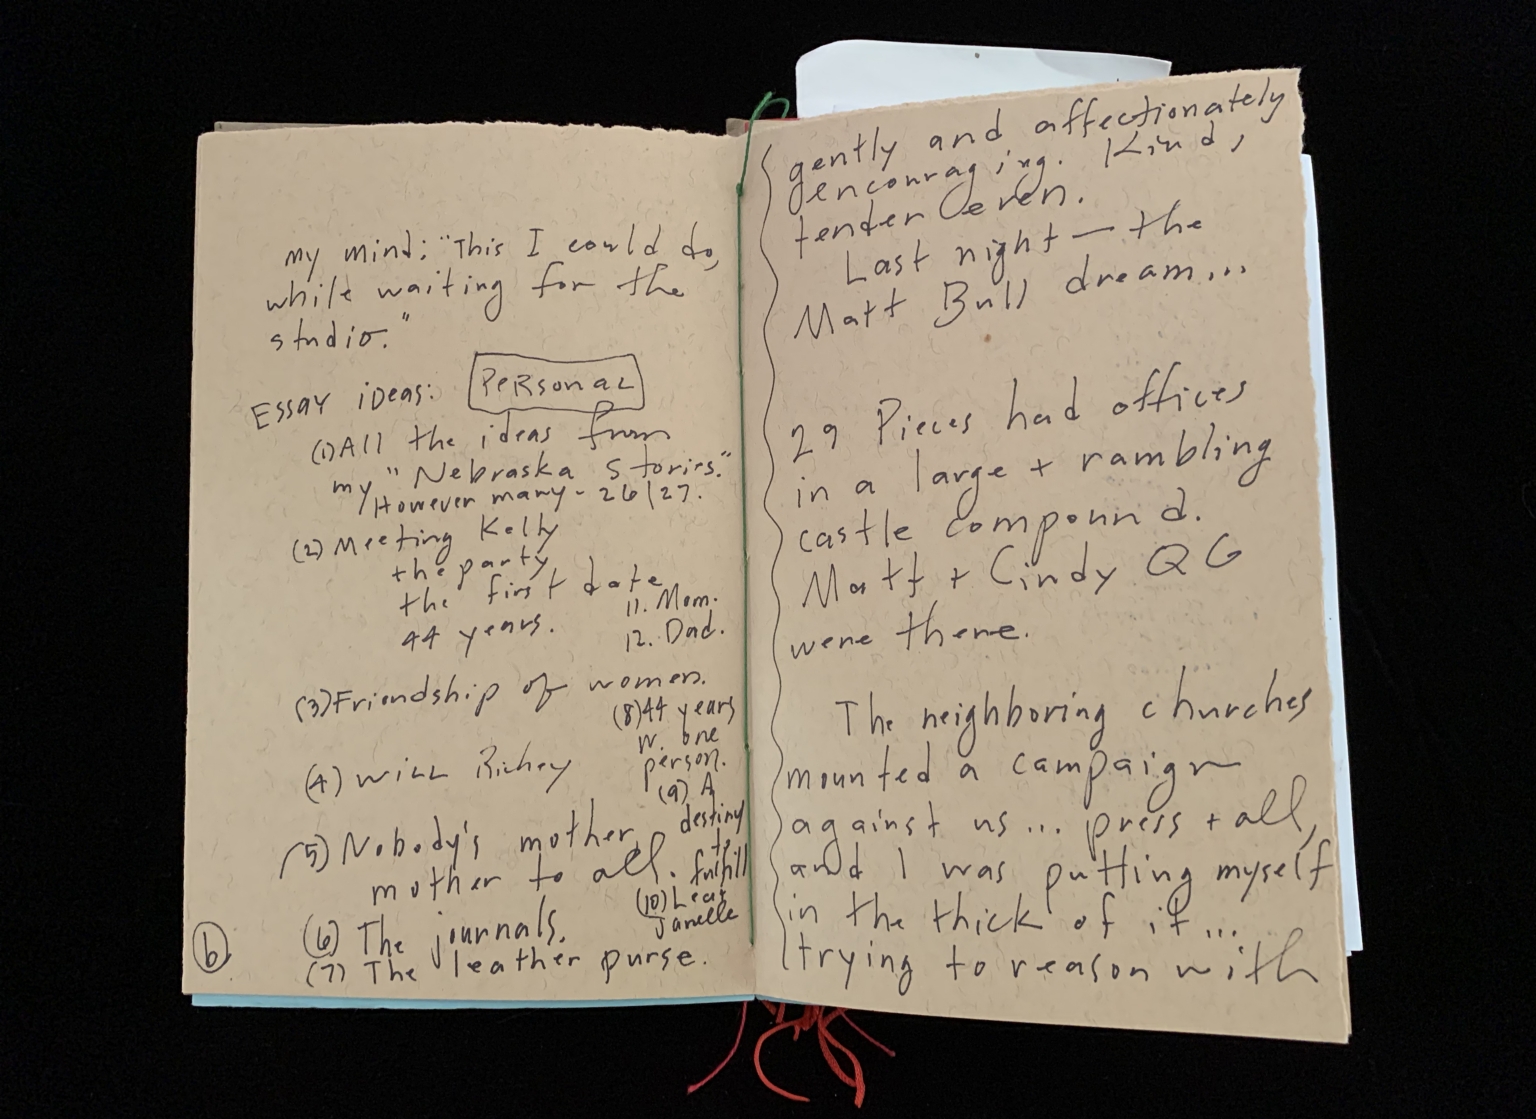 my mind: "This I could do,
while waiting for the
studio."
Essay ideas: Personal
(1) All the ideas from
my "Nebraska Stories."
However many - 26/27.
(2) Meeting Kelly
the party
the first date
44 years.
(3) Friendship of women.
(4) Will Richey
(5) Nobody's mother,
mother to all.
(6) The journals.
(7) The leather purse.
(8) 44 years
w. one
person.
(9) A
destiny
to
fulfill
(10) Leaf
Janelle
11. Mom.
12. Dad.
6
gently and affectionately
encouraging. Kind,
tender even.
Last night — the
Matt Bull dream...
29 Pieces had offices
in a large + rambling
castle compound.
Matt + Cindy QG
were there.
The neighboring churches
mounted a campaign
against us... press + all,
and I was putting myself
in the thick of it...
trying to reason with